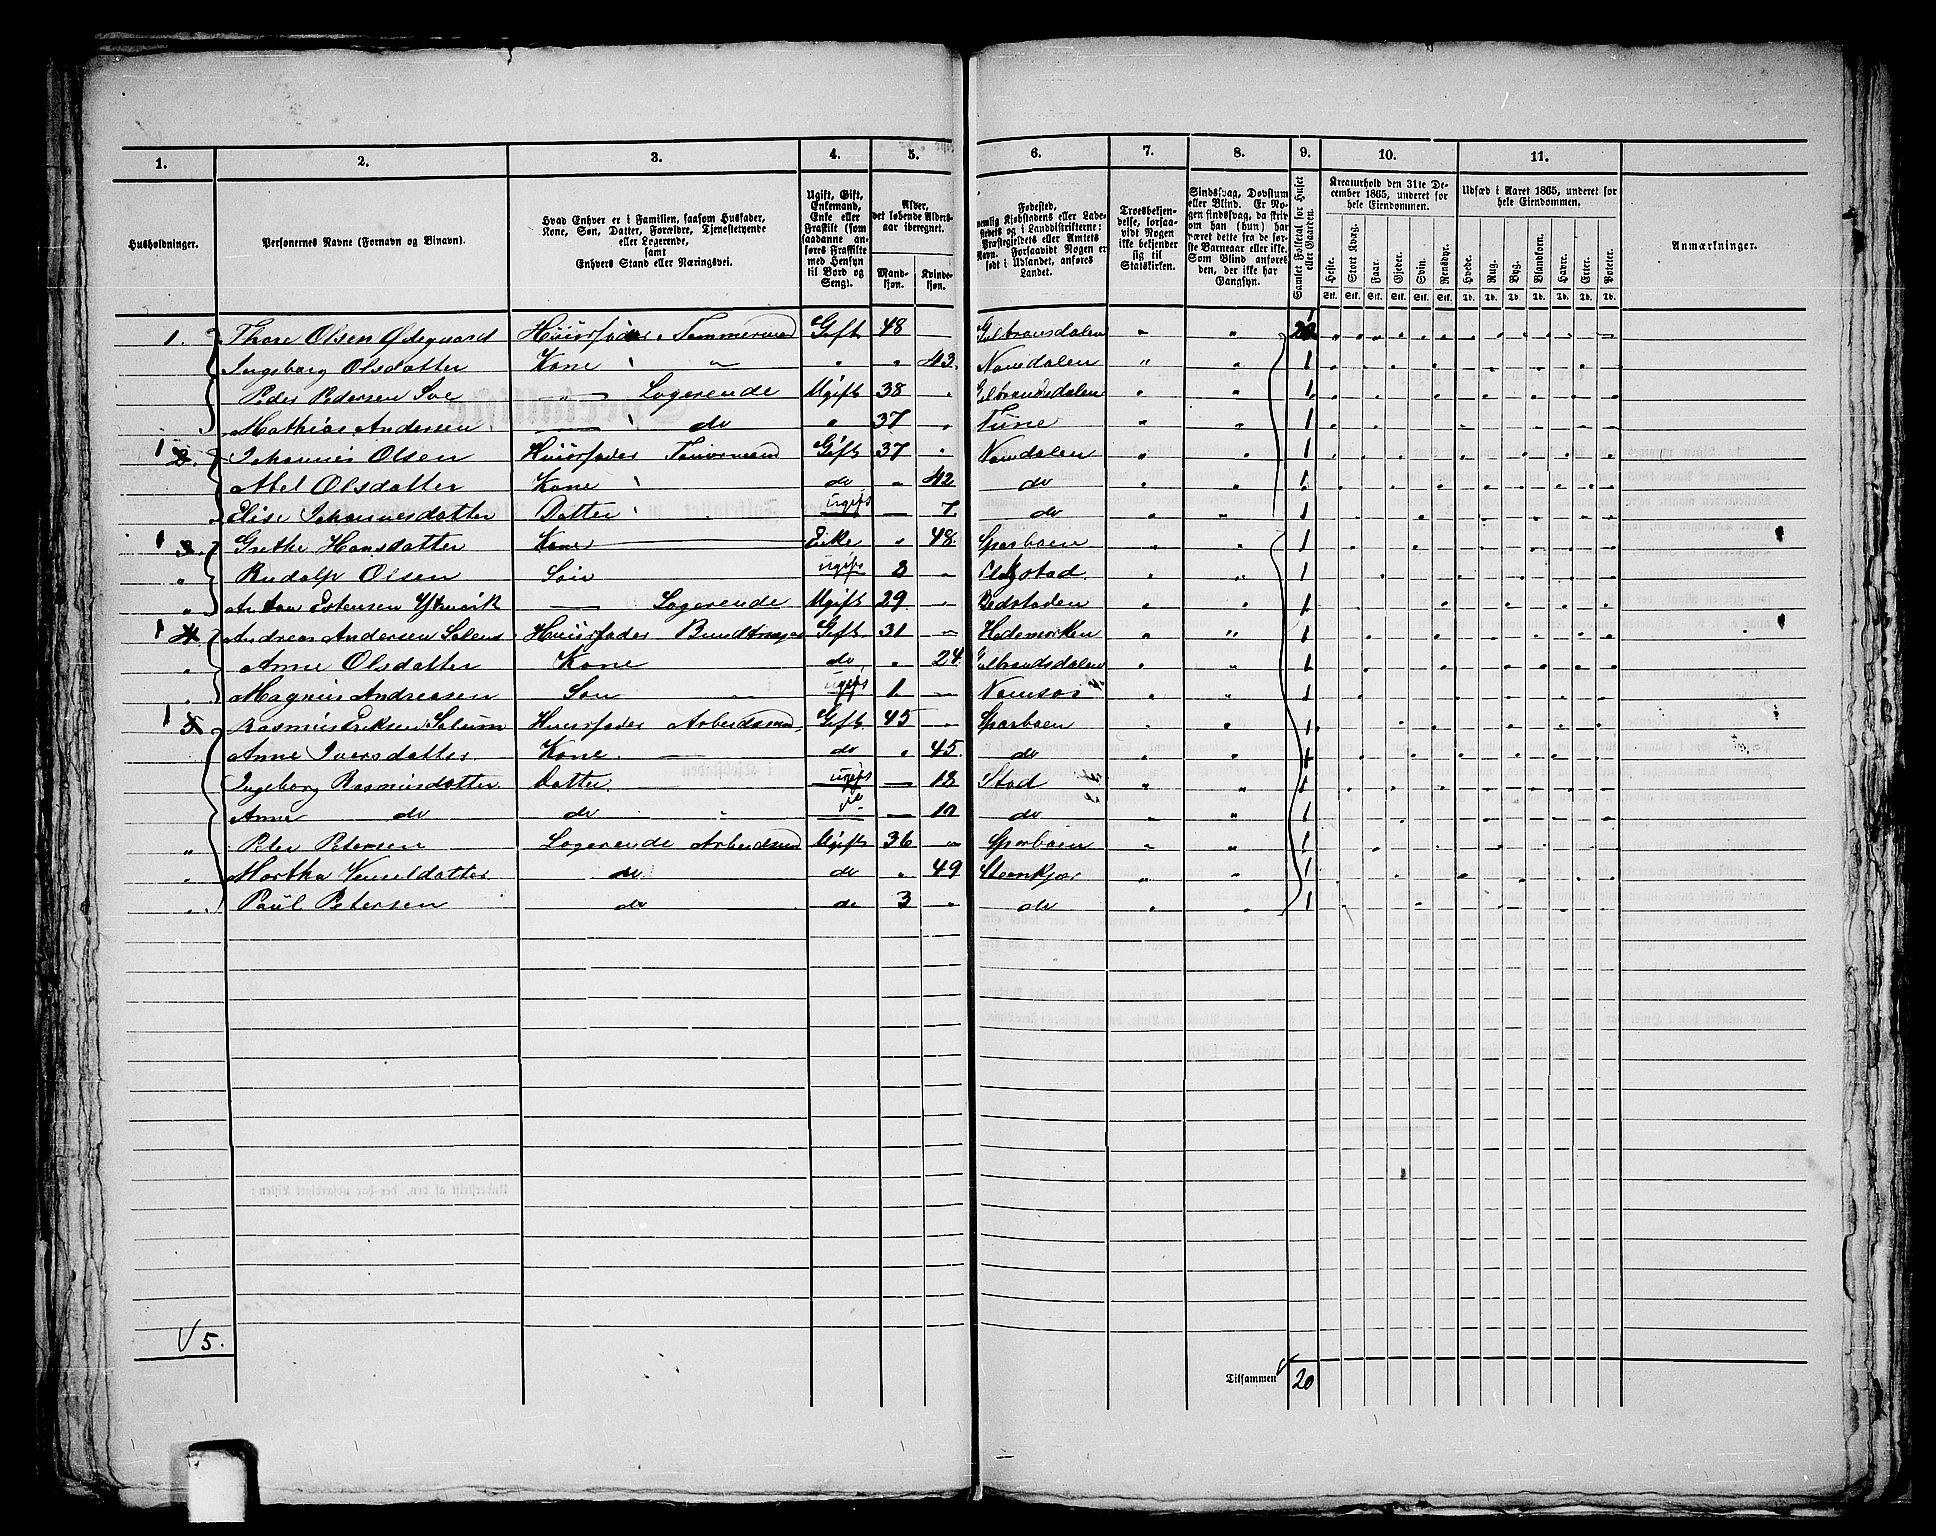 1. 2. 3. 4. 5. 6. 7. 8. 9. 10. 11.
Husholdninger.
Personernes Navne (Fornavn og Binavn).
Hvad Enhver er i Familien, saasom Husfader, Kone, Søn, Datter, Forældre, Tjenestetyende eller Logerende, samt Enhvers Stand eller Næringsvei.
Ugift, Gift, Enkemand, Enke eller Fraskilt (som saadanne anføres Fraskilte med Hensyn til Bord og Seng).
Alder, det løbende Aldersaar iberegnet.
Mandkjøn. Kvindekjøn.
Fødested, nemlig Kjøbstadens eller Ladestedets og i Landdistrikterne: Præstegjeldets eller Amtets Navn. Forsaavidt Nogen er født i Udlandet, anføres Landet.
Troesbekjendelse, forsaavidt Nogen ikke bekjender sig til Statskirken.
Sindssvag, Døvstum eller Blind. Er Nogen sindssvag, da skriv om han (hun) har været dette fra de første Barneaar eller ikke. Som Blind anføres den, der ikke har Gangsyn.
Samlet Folketal for Huset eller Gaarden.
Kreaturhold den 31te December 1865, underet for hele Eiendommen.
Heste. Stort Kvæg. Faar. Gjeder. Svin. Rensdyr.
Udsæd i Aaret 1865, underet for hele Eiendommen.
Hvede. Rug. Byg. Blandkorn. Havre. Erter. Poteter.
Anmærkninger.
Stk. Stk. Stk. Stk. Stk. Stk. Td. Td. Td. Td. Td. Td. Td.
1. Thore Olsen Ødegaard Huusfader Tømmermand Gift 48 Gulbransdalen 1
Ingeborg Olsdatter Kone " " " 43. Namdalen 1
Peder Pedersen Soe " Logerende Ugift 38 Gulbrandsdalen 1
Mathias Andersen " do " 37 Tune 1
1 2. Johannes Olsen Huusfader Gift 37 Namdalen 1
Abel Olsdatter Kone do " 42 do 1
Elise Johannesdatter Datter ugift 7. do 1
1 3. Grethe Hansdatter Kone Enke " 48. Sparboen 1
" Rudolf Olsen Søn ugift 1
" Estensen Logerende Ugift 29 1
1 4. Andreas Andersen Huusfader Gift 31 Hedemarken 1
" Anne Olsdatter Kone do " 24. Gulbrandsdalen 1
" Magnus Andreasen Søn ugift 1. Namsos 1
1 5 Rasmus Eriksen Huusfader Arbeidsmd. Gift 45 Sparboen 1
Anne Iversdatter Kone do " 45. do 1
Ingeborg Rasmusdatter Datter ugift 13 Stod 1
Anne do do do 10 do 1
" Peter Petersen Logerende Arbeidsmd Ugift 36 Sparboen 1
" Martha do do " 49 Steenkjær 1
" Paul Petersen do do 3 " do 1
5.
Tilsammen 20